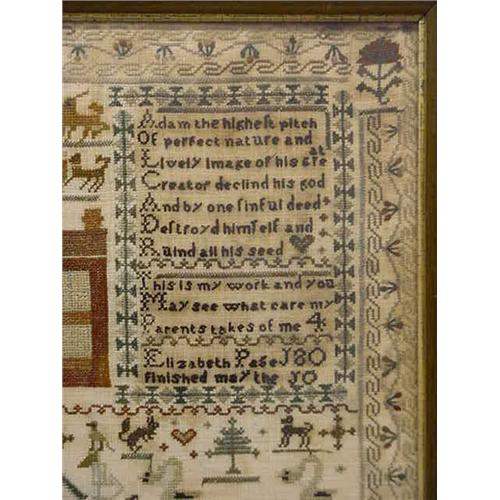 Adam the higheſt pitch
Of perfect nature and
Lively image of his gre at
Creator declind his god
And by one ſinful deed
Deſtroyd himſelf and
Ruind all his seed
This is my work and you
May see what care my
Parents takes of me 4
Elizabeth Page 180
finished may the 10